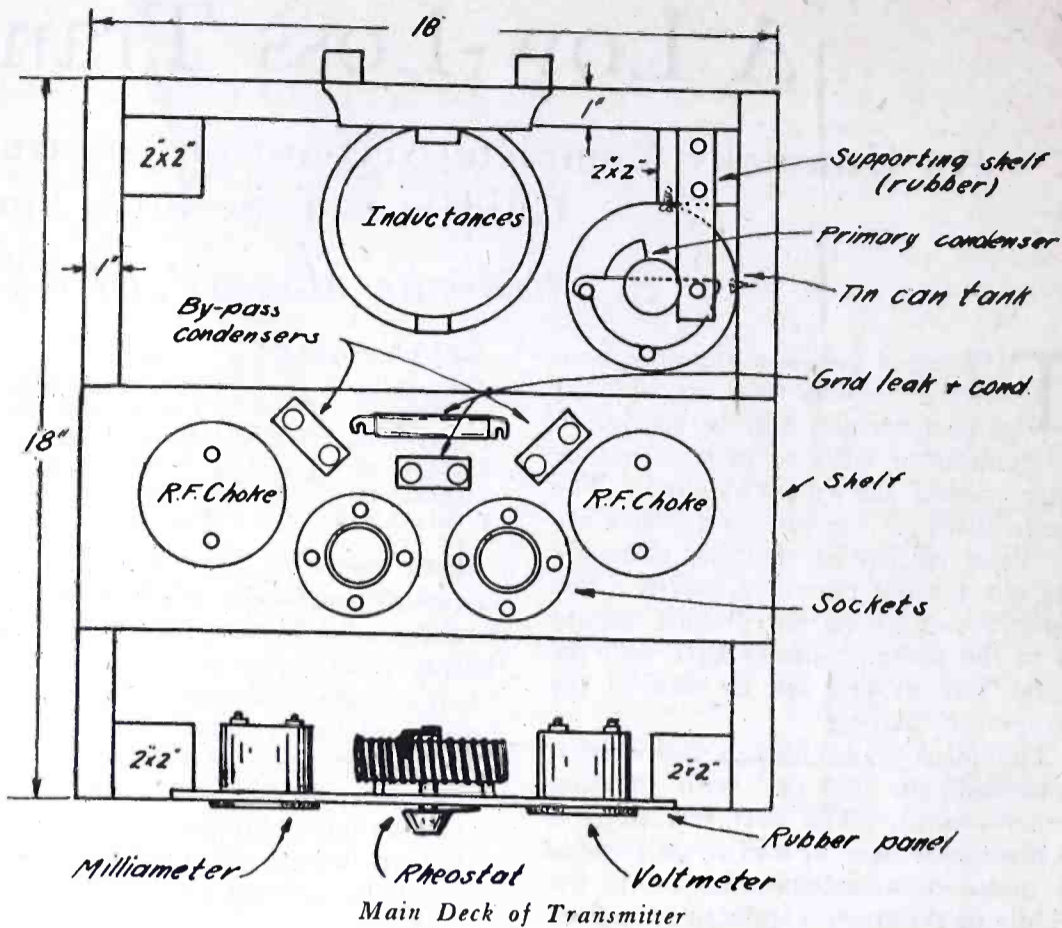 18
1"
2"x2"
2"x2"
Supporting shelf
(rubber)
Inductances
Primary condenser
1"
Tin can tank
By-pass
condensers
Grid leak + cond.
18"
R.F. Choke
R.F. Choke
Shelf
Sockets
2"x2"
2"x2"
Rubber panel
Milliameter
Rheostat
Voltmeter
Main Deck of Transmitter